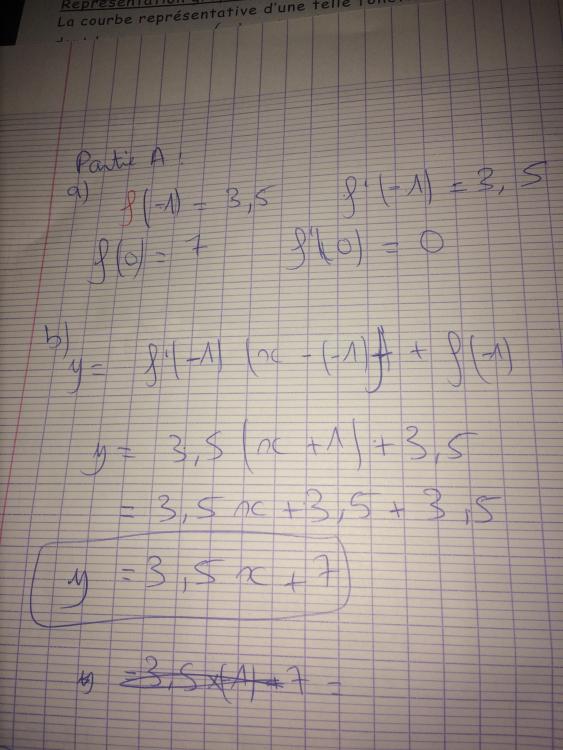 Représentation
La courbe représentative d'une telle
Partie A :
a) f(-1) = 3,5 f'(-1) = 3,5
f(0) = 7 f'(0) = 0
b) y = f'(-1) (x - (-1)) + f(-1)
y = 3,5 (x + 1) + 3,5
= 3,5 x + 3,5 + 3,5
y = 3,5 x + 7
y = 3,5 x (1) + 7 =